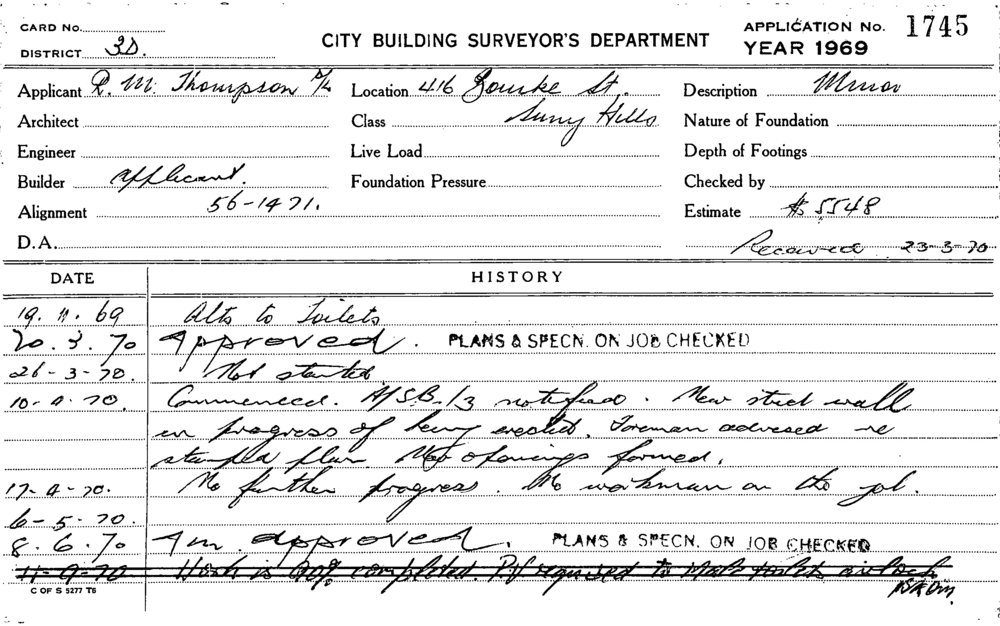 CARD No.
DISTRICT 3D.
CITY BUILDING SURVEYOR'S DEPARTMENT
APPLICATION No. 1745
YEAR 1969
Applicant R. M. Thompson P/L
Location 416 Bourke St.
Description Minor
Architect
Class Surry Hills
Nature of Foundation
Engineer
Live Load
Depth of Footings
Builder applicant.
Foundation Pressure
Checked by
Alignment 56-1471.
Estimate $5548
D.A.
Received 23-3-70
DATE HISTORY
19. 11. 69 Alts to Toilets
20. 3. 70 Approved. PLANS & SPECN. ON JOB CHECKED
26-3-70. Not started
10-4-70. Commenced. A/S.B. 1/3 notified. New stud wall
in progress of being erected. Foreman advised re
stamped plan. No openings formed.
17-4-70. No further progress. No workman on the job.
6-5-70.
8. 6. 70 Am. approved. PLANS & SPECN. ON JOB CHECKED
11-9-70 Work is 90% completed. P.V required to Male toilets airlock
C OF S 5277 T6